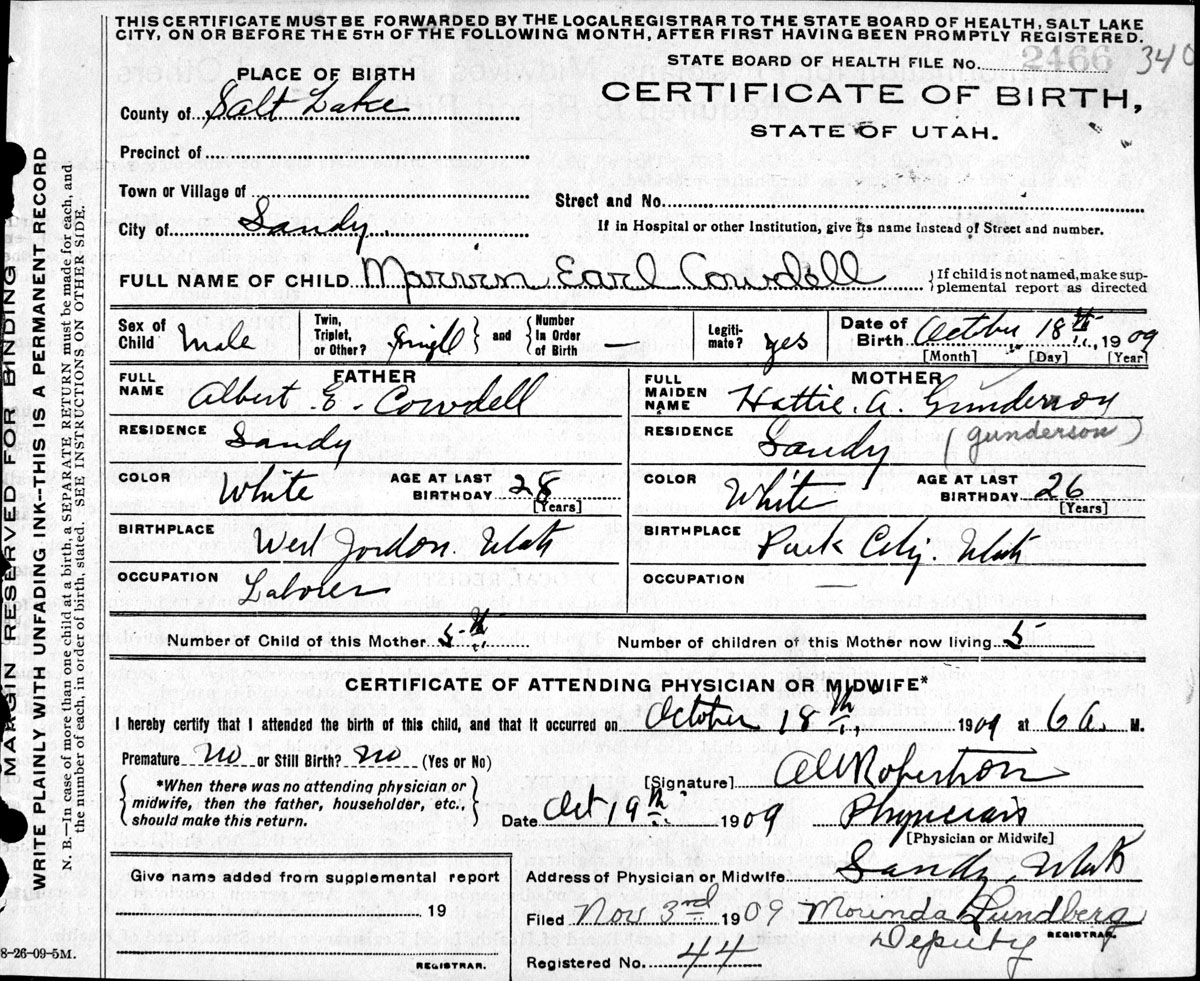 THIS CERTIFICATE MUST BE FORWARDED BY THE LOCAL REGISTRAR TO THE STATE BOARD OF HEALTH, SALT LAKE
CITY, ON OR BEFORE THE 5TH OF THE FOLLOWING MONTH, AFTER FIRST HAVING BEEN PROMPTLY REGISTERED.
STATE BOARD OF HEALTH FILE No. 2466 340
PLACE OF BIRTH
CERTIFICATE OF BIRTH,
County of Salt Lake
STATE OF UTAH.
Precinct of
Town or Village of
Street and No.
City of Sandy.
If in Hospital or other Institution, give its name instead of Street and number.
FULL NAME OF CHILD Marvin Earl Cowdell } If child is not named, make sup-
plemental report as directed
Sex of Child Male Twin, Triplet, or Other? Single } and { Number In Order of Birth — Legiti-mate? yes Date of Birth October 18th, 1909
[Month] [Day] [Year]
FATHER MOTHER
FULL NAME Albert E. Cowdell FULL MAIDEN NAME Hattie A. Gunderson
RESIDENCE Sandy RESIDENCE Sandy (Gunderson)
COLOR White AGE AT LAST BIRTHDAY 28 [Years] COLOR White AGE AT LAST BIRTHDAY 26 [Years]
BIRTHPLACE West Jordon. Utah BIRTHPLACE Park City. Utah
OCCUPATION Laborer OCCUPATION —
Number of Child of this Mother 5th Number of children of this Mother now living 5
CERTIFICATE OF ATTENDING PHYSICIAN OR MIDWIFE*
I hereby certify that I attended the birth of this child, and that it occurred on October 18th, 1909 at 6 a. M.
Premature no or Still Birth? no (Yes or No)
{ *When there was no attending physician or
midwife, then the father, householder, etc.,
should make this return. }
[Signature] Robertson
Date Oct 19th 1909 Physician
[Physician or Midwife]
Give name added from supplemental report
19
REGISTRAR.
Address of Physician or Midwife Sandy, Utah
Filed Nov 3rd 1909 Lundberg
Deputy REGISTRAR.
Registered No. 44
8-26-09-5M.
MARGIN RESERVED FOR BINDING
WRITE PLAINLY WITH UNFADING INK--THIS IS A PERMANENT RECORD
N. B.—In case of more than one child at a birth, a SEPARATE RETURN must be made for each, and
the number of each, in order of birth, stated. SEE INSTRUCTIONS ON OTHER SIDE.